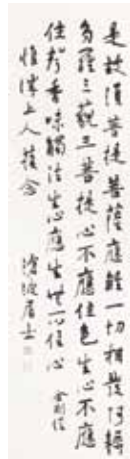 是故須菩提菩薩應離一切相發阿耨
多羅三藐三菩提心不應住色生心不應
住聲香味觸法生心應生無所住心 金剛經
上人 念 滄波居士